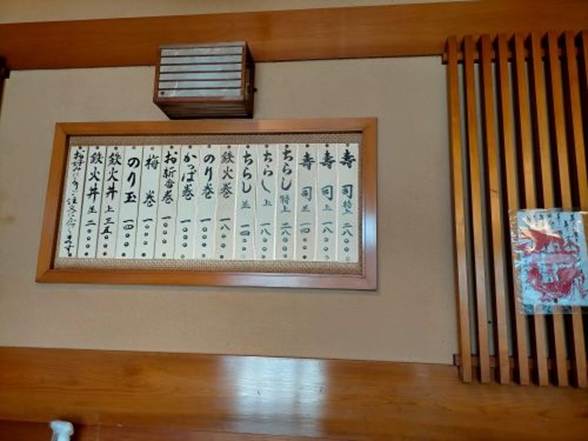 寿司 特上 二八〇〇
寿司 上 一八〇〇
寿司 並 一四〇〇
ちらし 特上 二八〇〇
ちらし 上 一八〇〇
ちらし 並 一四〇〇
鉄火巻 一八〇〇
のり巻 一〇〇〇
かっぱ巻 一〇〇〇
お新香巻 一〇〇〇
梅巻 一〇〇〇
のり玉 一四〇〇
鉄火丼 上 三五〇〇
鉄火丼 並 二〇〇〇